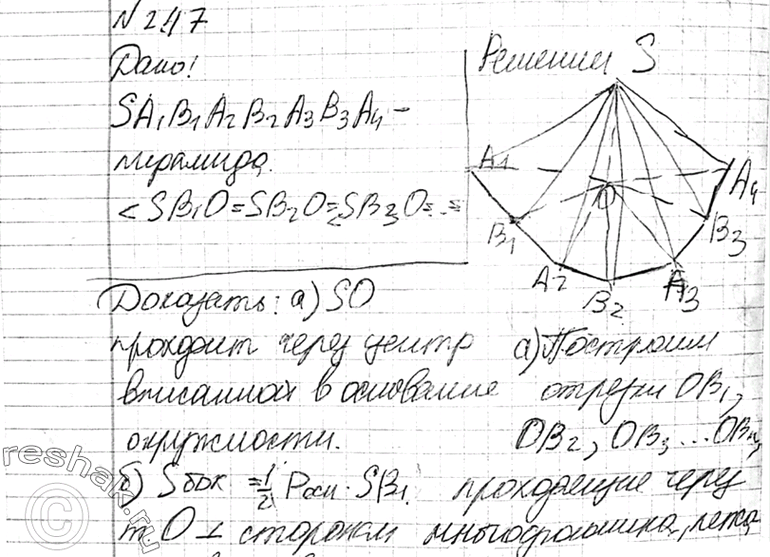 N 247
Дано!
SA1B1A2B2A3B3A4 –
пирамида.
<SB1O=SB2O=SB3O=..=
Решение
S
A1
A4
O
B1
B3
A2
B2
A3
Доказать: а) SO
проходит через центр
вписанной в основание
окружности.
б) Sбок = 1/2 Pосн · SB1.
а) Построим
отрезки OB1,
OB2, OB3 ...OBn,
проходящие через
т. O ⊥ сторонам многогранника,
reshak.ru
©